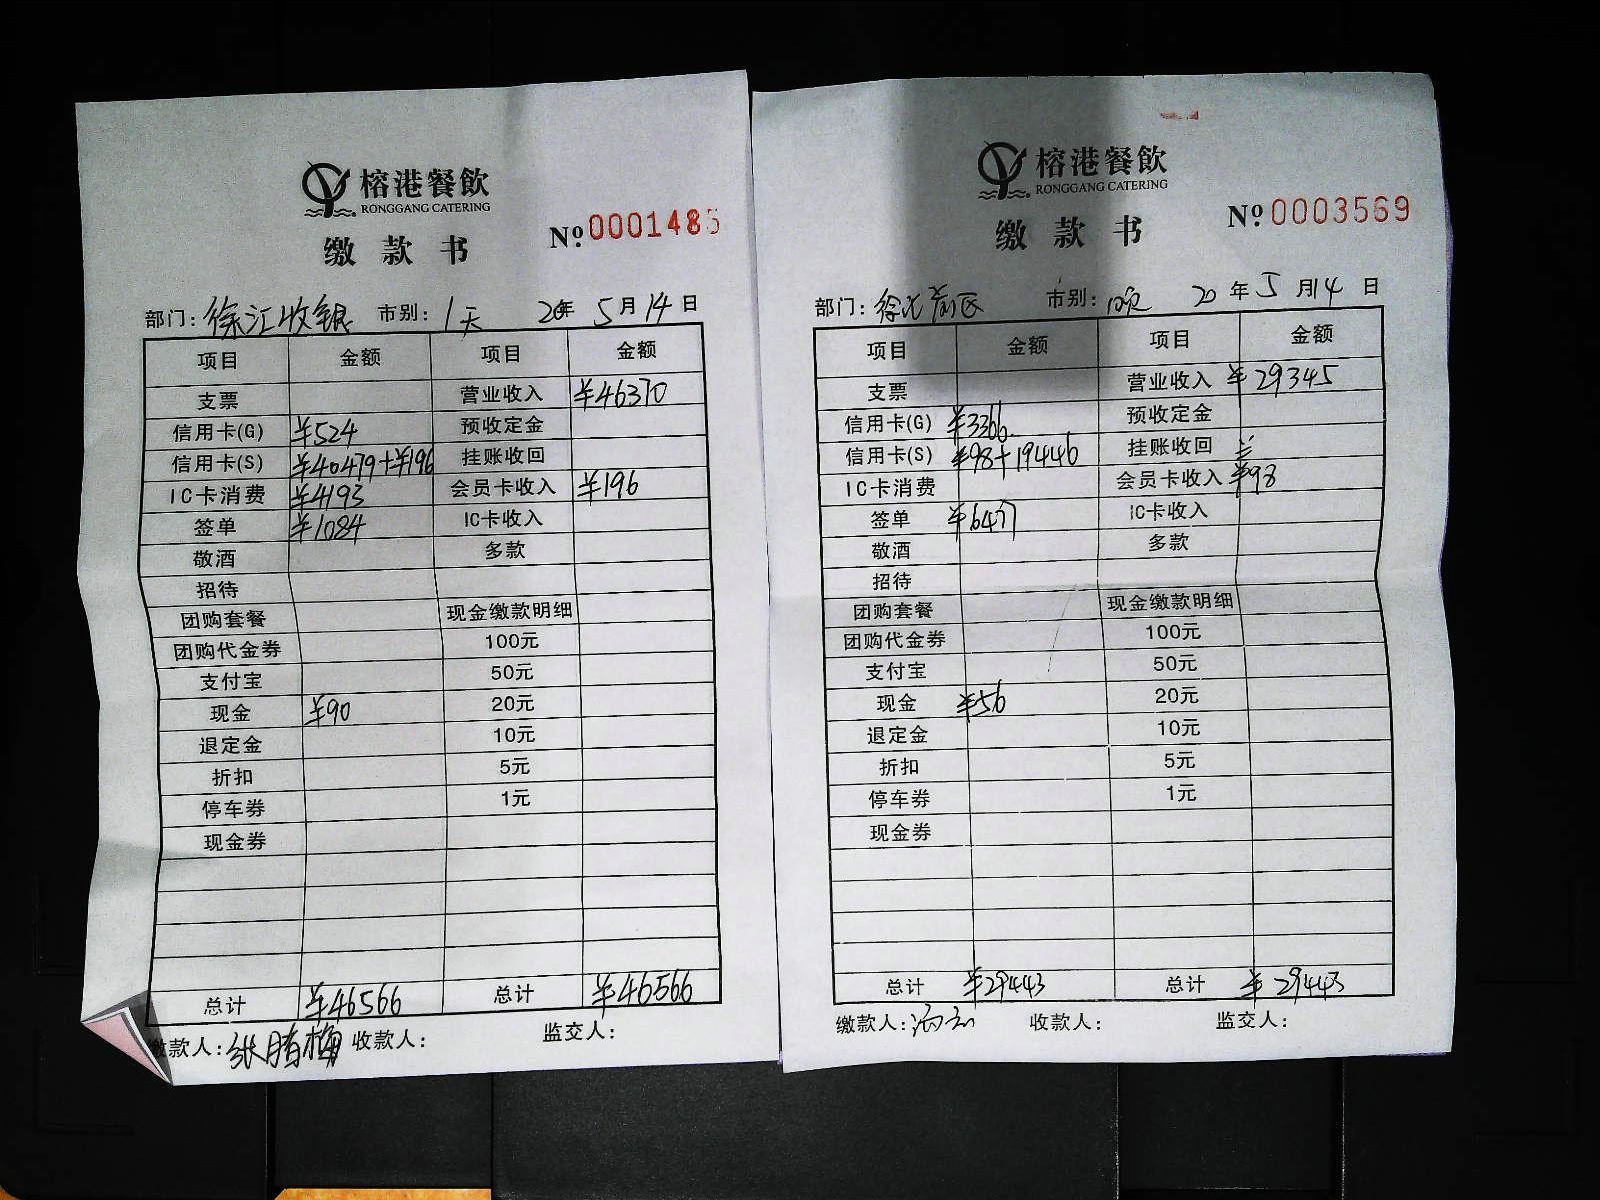 榕港餐飲
RONGGANG CATERING
缴款书
№ 0001485
部门: 徐汇收银 市别: 1天 20年 5月14日
项目 金额 项目 金额
支票 营业收入 ¥46370
信用卡(G) ¥524 预收定金
信用卡(S) ¥40479+¥196 挂账收回
IC卡消费 ¥4193 会员卡收入 ¥196
签单 ¥1084 IC卡收入
敬酒 多款
招待
团购套餐 现金缴款明细
团购代金券 100元
支付宝 50元
现金 ¥90 20元
退定金 10元
折扣 5元
停车券 1元
现金券
总计 ¥46566 总计 ¥46566
缴款人: 收款人: 监交人:
榕港餐飲
RONGGANG CATERING
缴款书
№ 0003569
部门: 市别: 晚 20年 5月14日
项目 金额 项目 金额
支票 营业收入 ¥29345
信用卡(G) ¥3366 预收定金
信用卡(S) ¥98+19446 挂账收回
IC卡消费 会员卡收入 ¥98
签单 ¥6477 IC卡收入
敬酒 多款
招待
团购套餐 现金缴款明细
团购代金券 100元
支付宝 50元
现金 ¥56 20元
退定金 10元
折扣 5元
停车券 1元
现金券
总计 ¥29443 总计 ¥29443
缴款人: 收款人: 监交人: